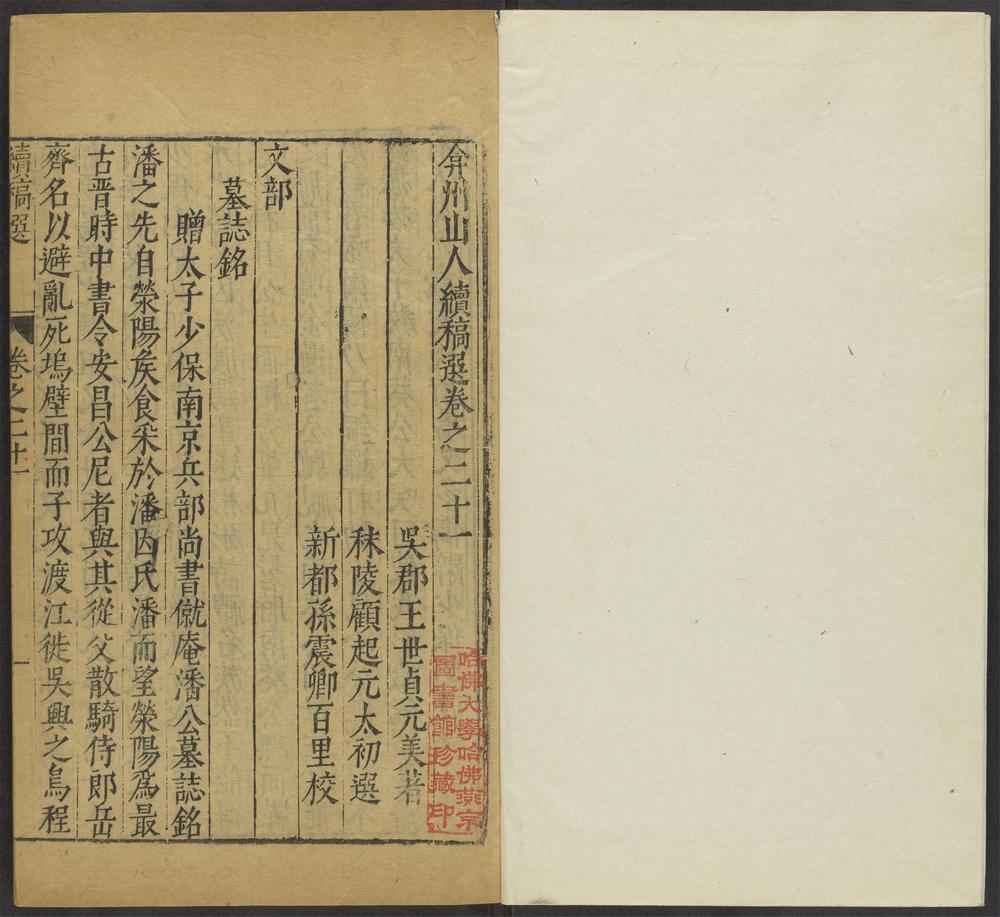 弇州山人續稿選卷之二十一
吳郡王世貞元美著
秣陵顧起元太初選
新都孫震卿百里校
文部
墓誌銘
贈太子少保南京兵部尚書僦庵潘公墓誌銘
潘之先自滎陽矦食采於潘因氏潘而望滎陽爲最
古晋時中書令安昌公尼者與其從父散騎侍郎岳
齊名以避亂死塢壁間而子攻渡江徙吳興之烏程
續稿選
卷之二十一
一
哈佛大學哈佛燕京
圖書館珍藏印